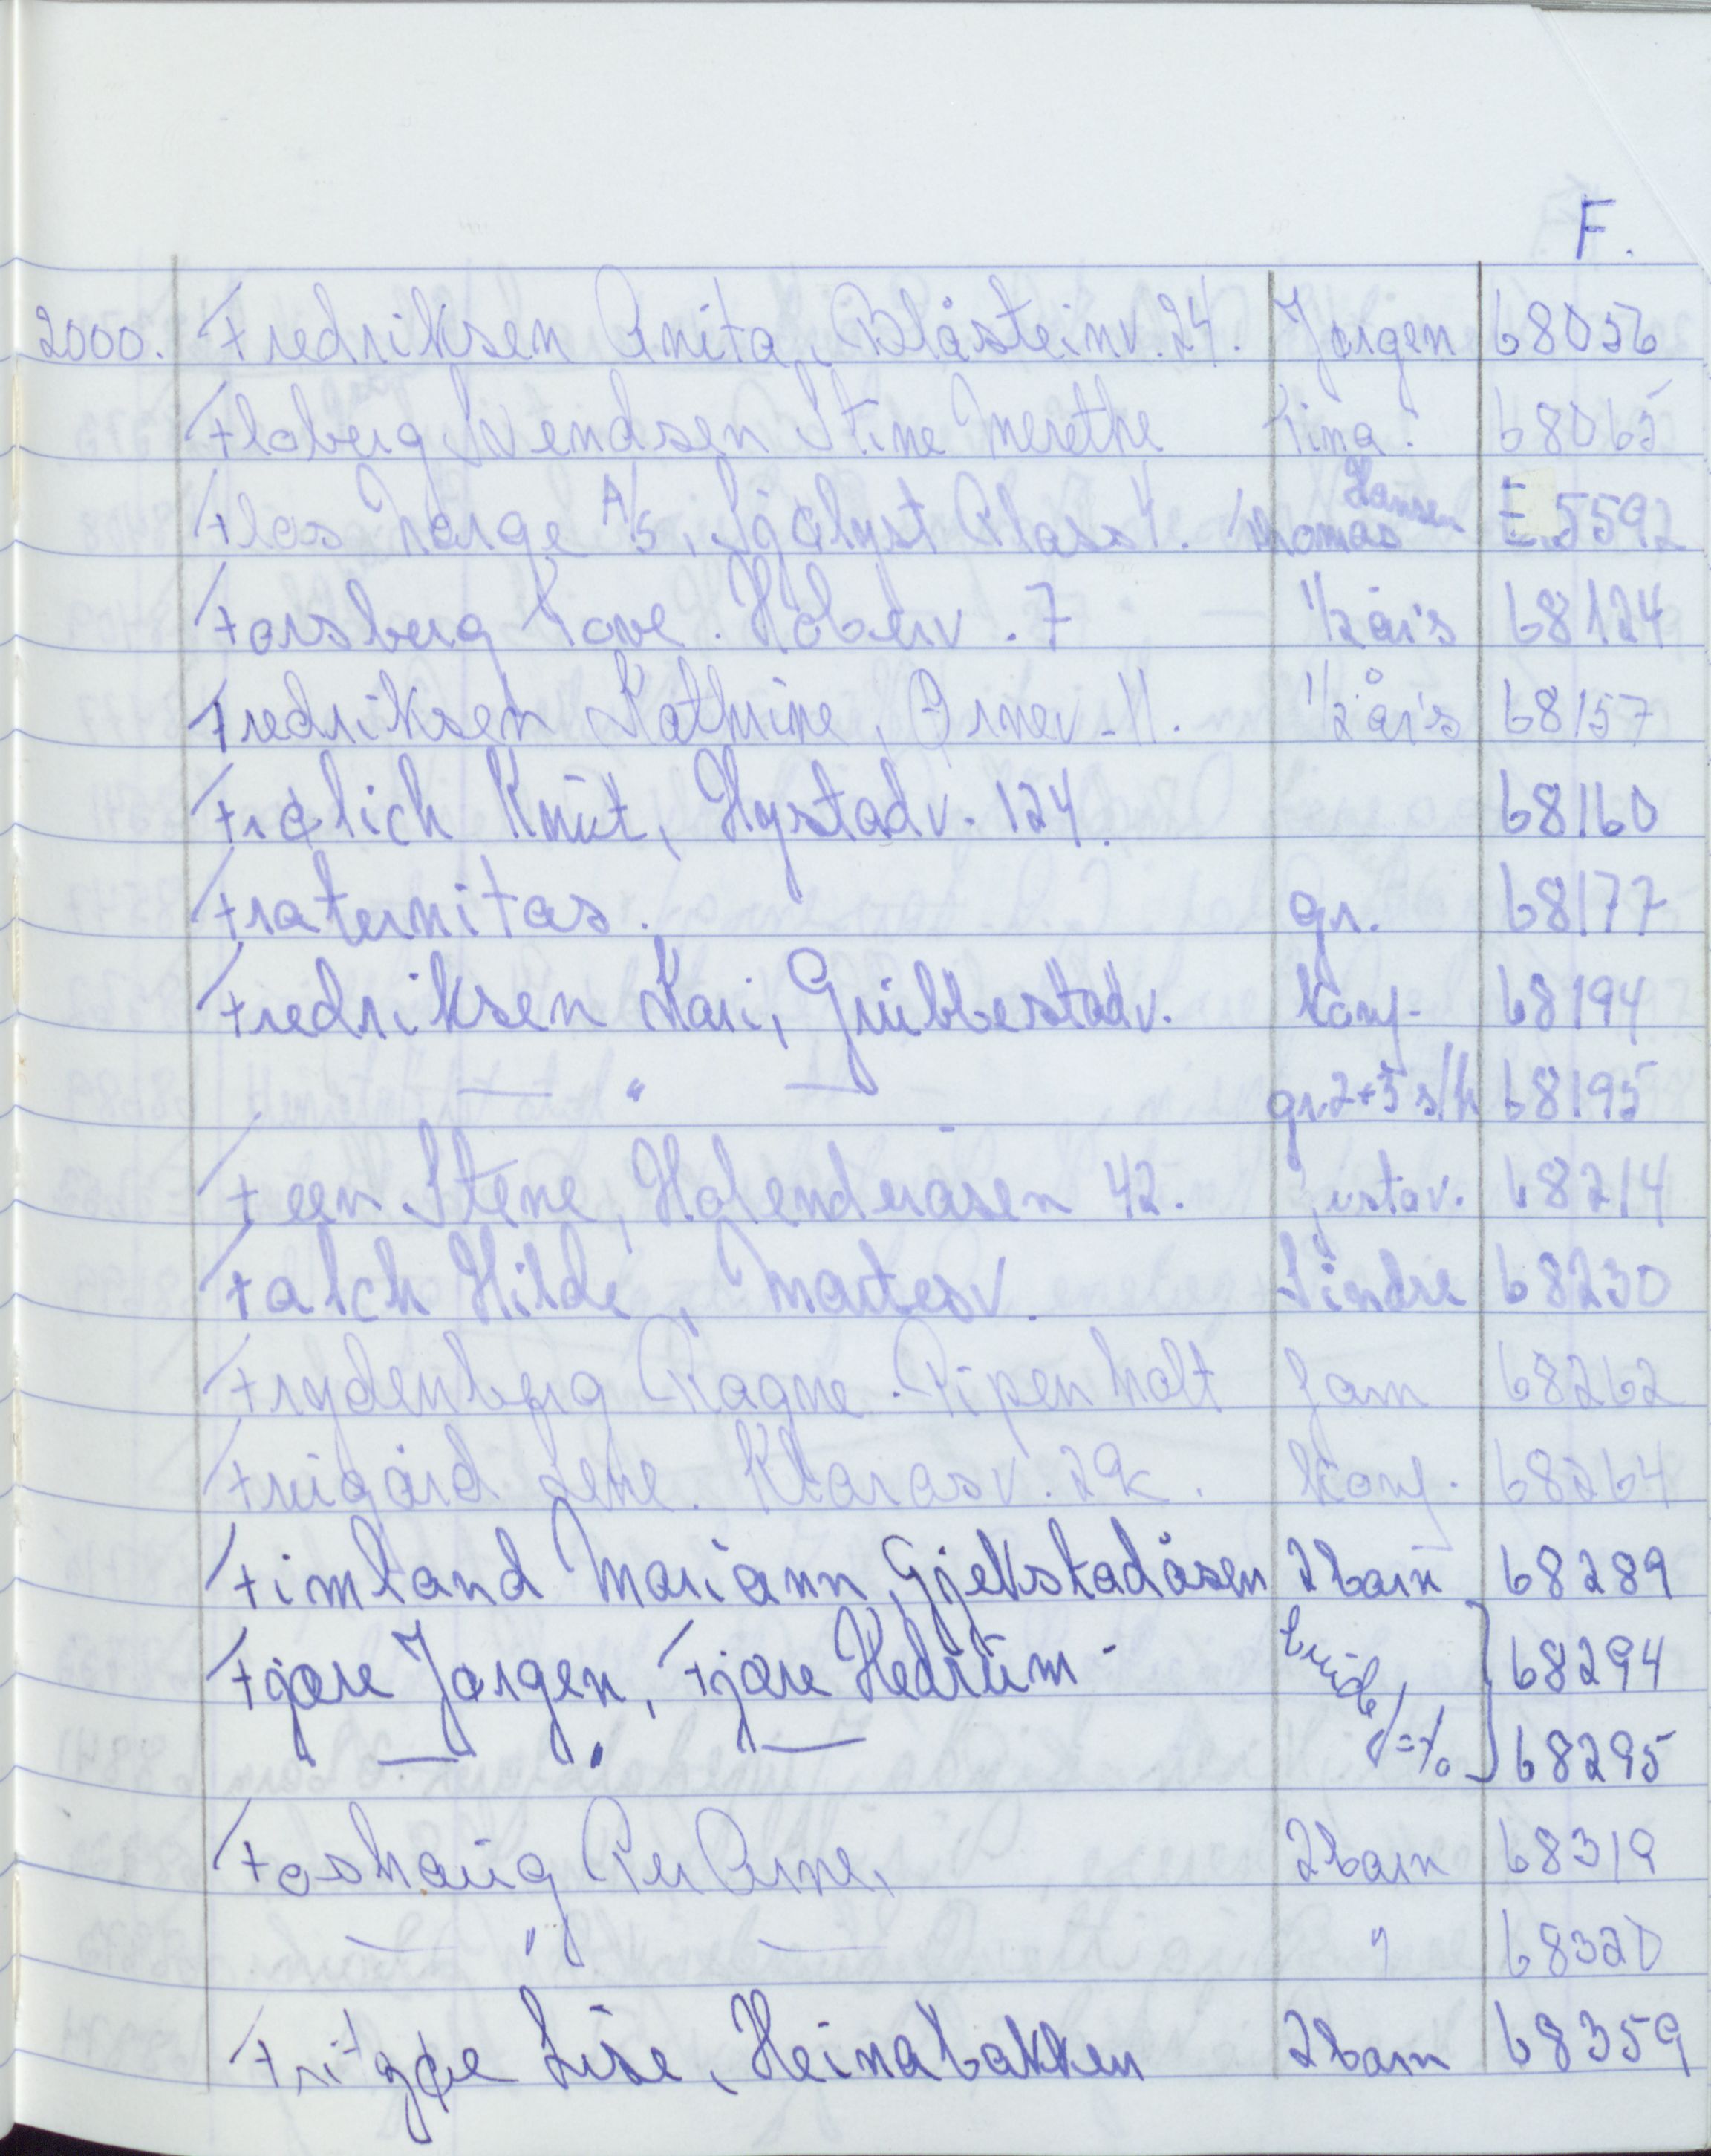 F.
2000. Fredriksen Anita, Blåsteinv. 24. Jørgen 68056
Floberg Svendsen Stine Merethe Tina. 68065
Flos Norge A/S, Sjølyst Plass 4. Thomas Hansen E.5592
Forsberg Tove. Høberv. 7 1/2 år's 68124
Fredriksen Kathrine, Ørnev. 11. 1/2 år's 68157
Frølich Knut, Hystadv. 124. 68160
Fraternitas. gr. 68177
Fredriksen Kari, Grubbestadv. Konf. 68194
— " — gr. 2+3 s/h 68195
Feen Stene, Holenderåsen 42. Gustav. 68214
Falch Hilde, Martesv. Sindre 68230
Frydenberg Ragne. Pipenholt fam 68262
Frugård Lene. Klarasv. 29k. Konf. 68264
Fimland Mariann, Gjekstadåsen 2 barn 68289
Fjære Jørgen, Fjære Hedrum brude/=% 68294
— " — 68295
Foshaug Per Arne, 2 barn 68319
— " — " 68320
Fritzøe Lise, Heinabakken 2 barn 68359